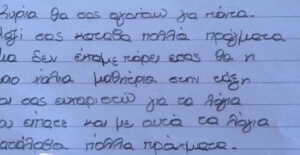 Κυρία θα σας αγαπάω για πάντα.
Μαζί σας κατάβα πολλά πράγματα
δεν είχαμε πάρει εσάς θα η
πιο χάλια μαθήτρια στην τάξη
σας ευχαριστώ για τα λόγια
είπατε και με αυτά τα λόγια
κατάλαβα πολλά πράγματα.